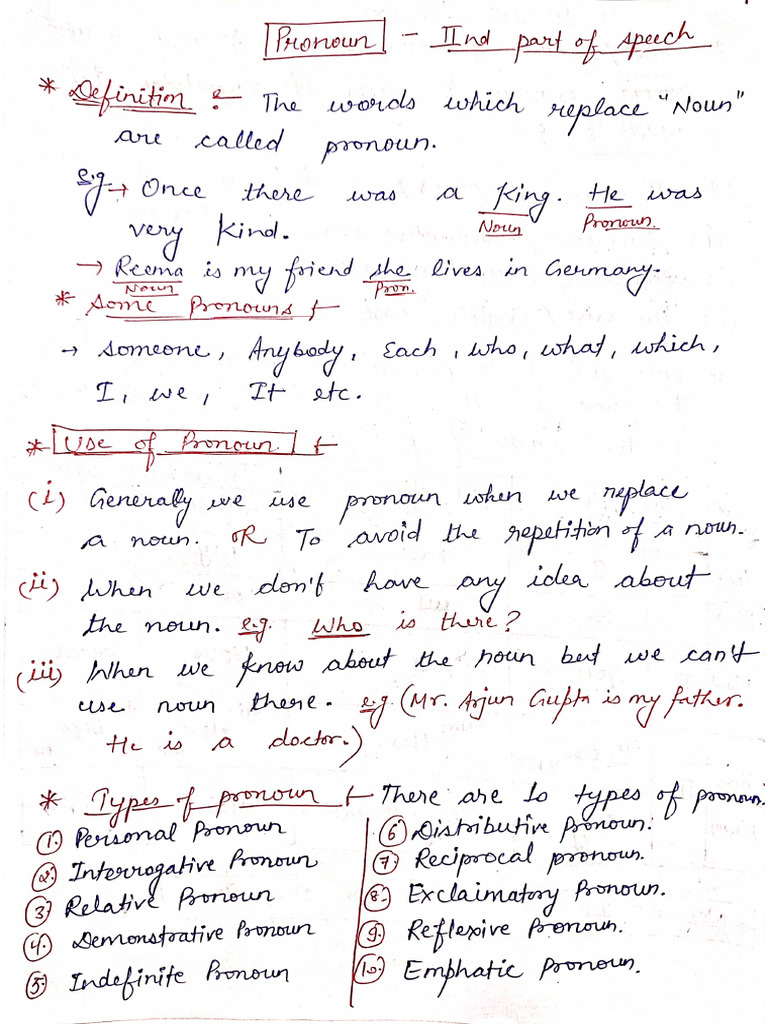 Pronoun - IInd part of speech
* Definition :- The words which replace "Noun"
are called pronoun.
e.g → Once there was a King. He was
Noun Pronoun.
very kind.
→ Reema is my friend she lives in Germany.
Noun Pron.
* Some Pronouns :-
→ Someone, Anybody, Each, who, what, which,
I, we, It etc.
* Use of Pronoun :-
(i) Generally we use pronoun when we replace
a noun. OR To avoid the repetition of a noun.
(ii) When we don't have any idea about
the noun. e.g. Who is there?
(iii) When we know about the noun but we can't
use noun there. e.g. (Mr. Arjun Gupta is my father.
He is a doctor.)
* Types of pronoun :- There are 10 types of pronoun.
1. Personal Pronoun
2. Interrogative Pronoun
3. Relative Pronoun
4. Demonstrative Pronoun
5. Indefinite Pronoun
6. Distributive pronoun.
7. Reciprocal pronoun.
8. Exclaimatory Pronoun.
9. Reflexive Pronoun.
10. Emphatic Pronoun.